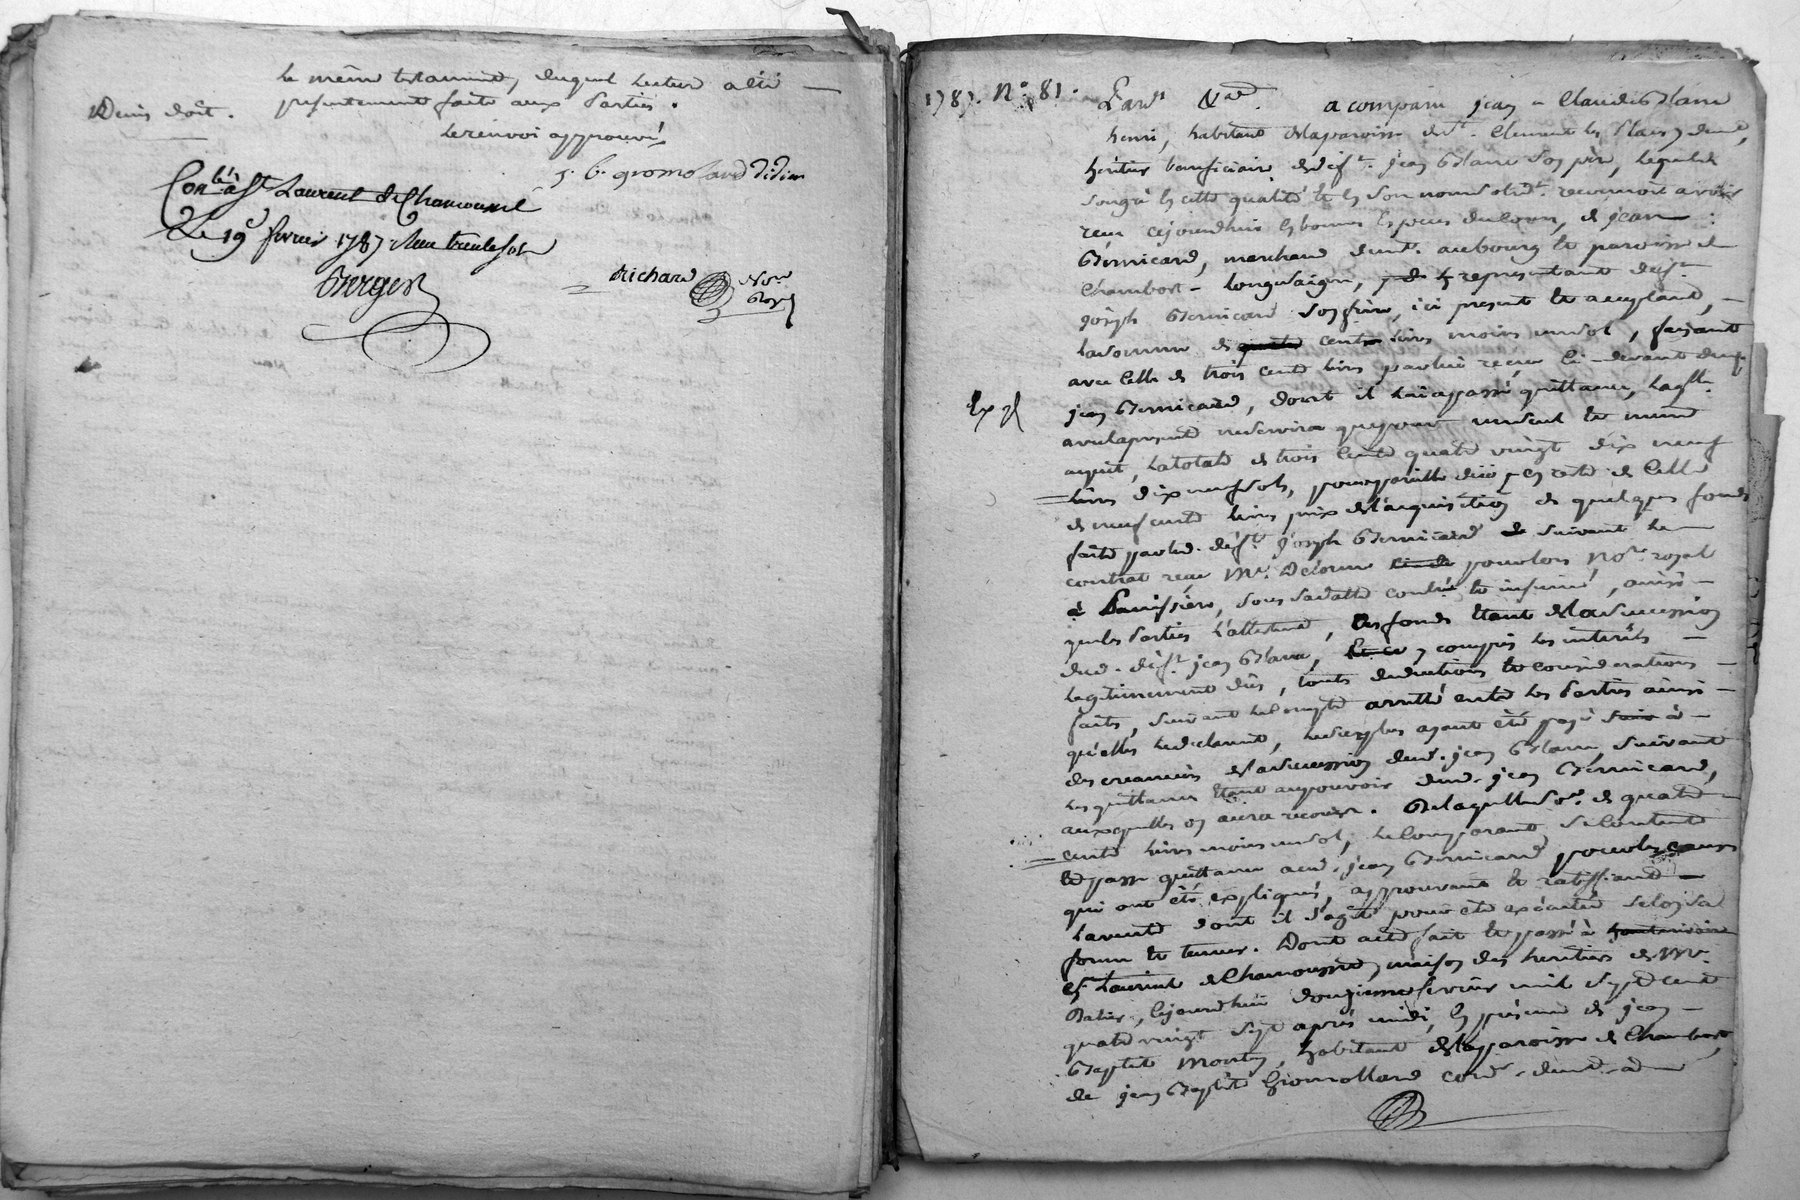 le même testament, duquel lecture a été
présentement faite aux parties.
Denis doit.
le renvoi approuvé
J. B. gromoland didier
Con.lé à St Laurent de Chamousset
Le 19e fevrier 1787 Reçu trente sols
Berger
Richard No.re Roy.l
1787. N.o 81.
Pard.t &a. a comparu jean - Claude Blanc
henri, habitant de la paroisse de St. Clement les places, dud.
héritier beneficiaire de déf.t jean Blanc son père, lequel de
son gré en cette qualité et en son nom reconnoit avoir
reçu cejourdhuis en bonnes especes du cours, de jean
Bernicard, marchand demt. au bourg et paroisse de
Chambost - longessaigne, representant déft.
joseph Bernicard son frère, ici present et acceptant,
la somme de cent livres moins un sol, faisant
avec celle de trois cent livres par lui reçue ci-devant dud.
Exp.é
jean Bernicard, dont il lui a passé quittance, laq.lle
avec la presente ne servira que pour un seul et meme
acquit, la totale de trois cents quatre vingt dix neuf
livres dix neuf sols, pour pareille due en reste de celle
de neuf cents livres prix de l'acquisition de quelques fonds
faite par led. déft. joseph Bernicard suivant le
contrat reçu Me. Delorme pour lors No.re royal
à Panissière, sous sa datte controlé et insinué, ainsi
que les parties l'attestent, les fonds étant de la succession
dud. déft. jean Blanc, y compris les interêts
legitimement dûs, touts deductions et considerations
faites, suivant le compte arrêté entre les parties ainsi
qu'elles le declarent, le surplus ayant été payé à
des creanciers de la succession dud. jean Blanc, suivant
les quittances étant au pouvoir dud. jean Bernicard,
auxquelles on aura recours. De laquelle so.e de quatre
cents livres moins un sol, le comparant se contente
et passe quittance aud. jean Bernicard pour les causes
qui ont été expliquées, approuvant et ratiffiant
la vente dont il s'agit pour être exécutée selon sa
forme et teneur. Dont acte fait et passé à
St Laurent de Chamousset, maison des heritiers de Me.
cejourdhui douzieme fevrier mil sept cent
quatre vingt sept après midi, en présence de jean
Baptiste habitant de la paroisse de Chambost,
de jean Baptiste Gromolland cord.r demt. a